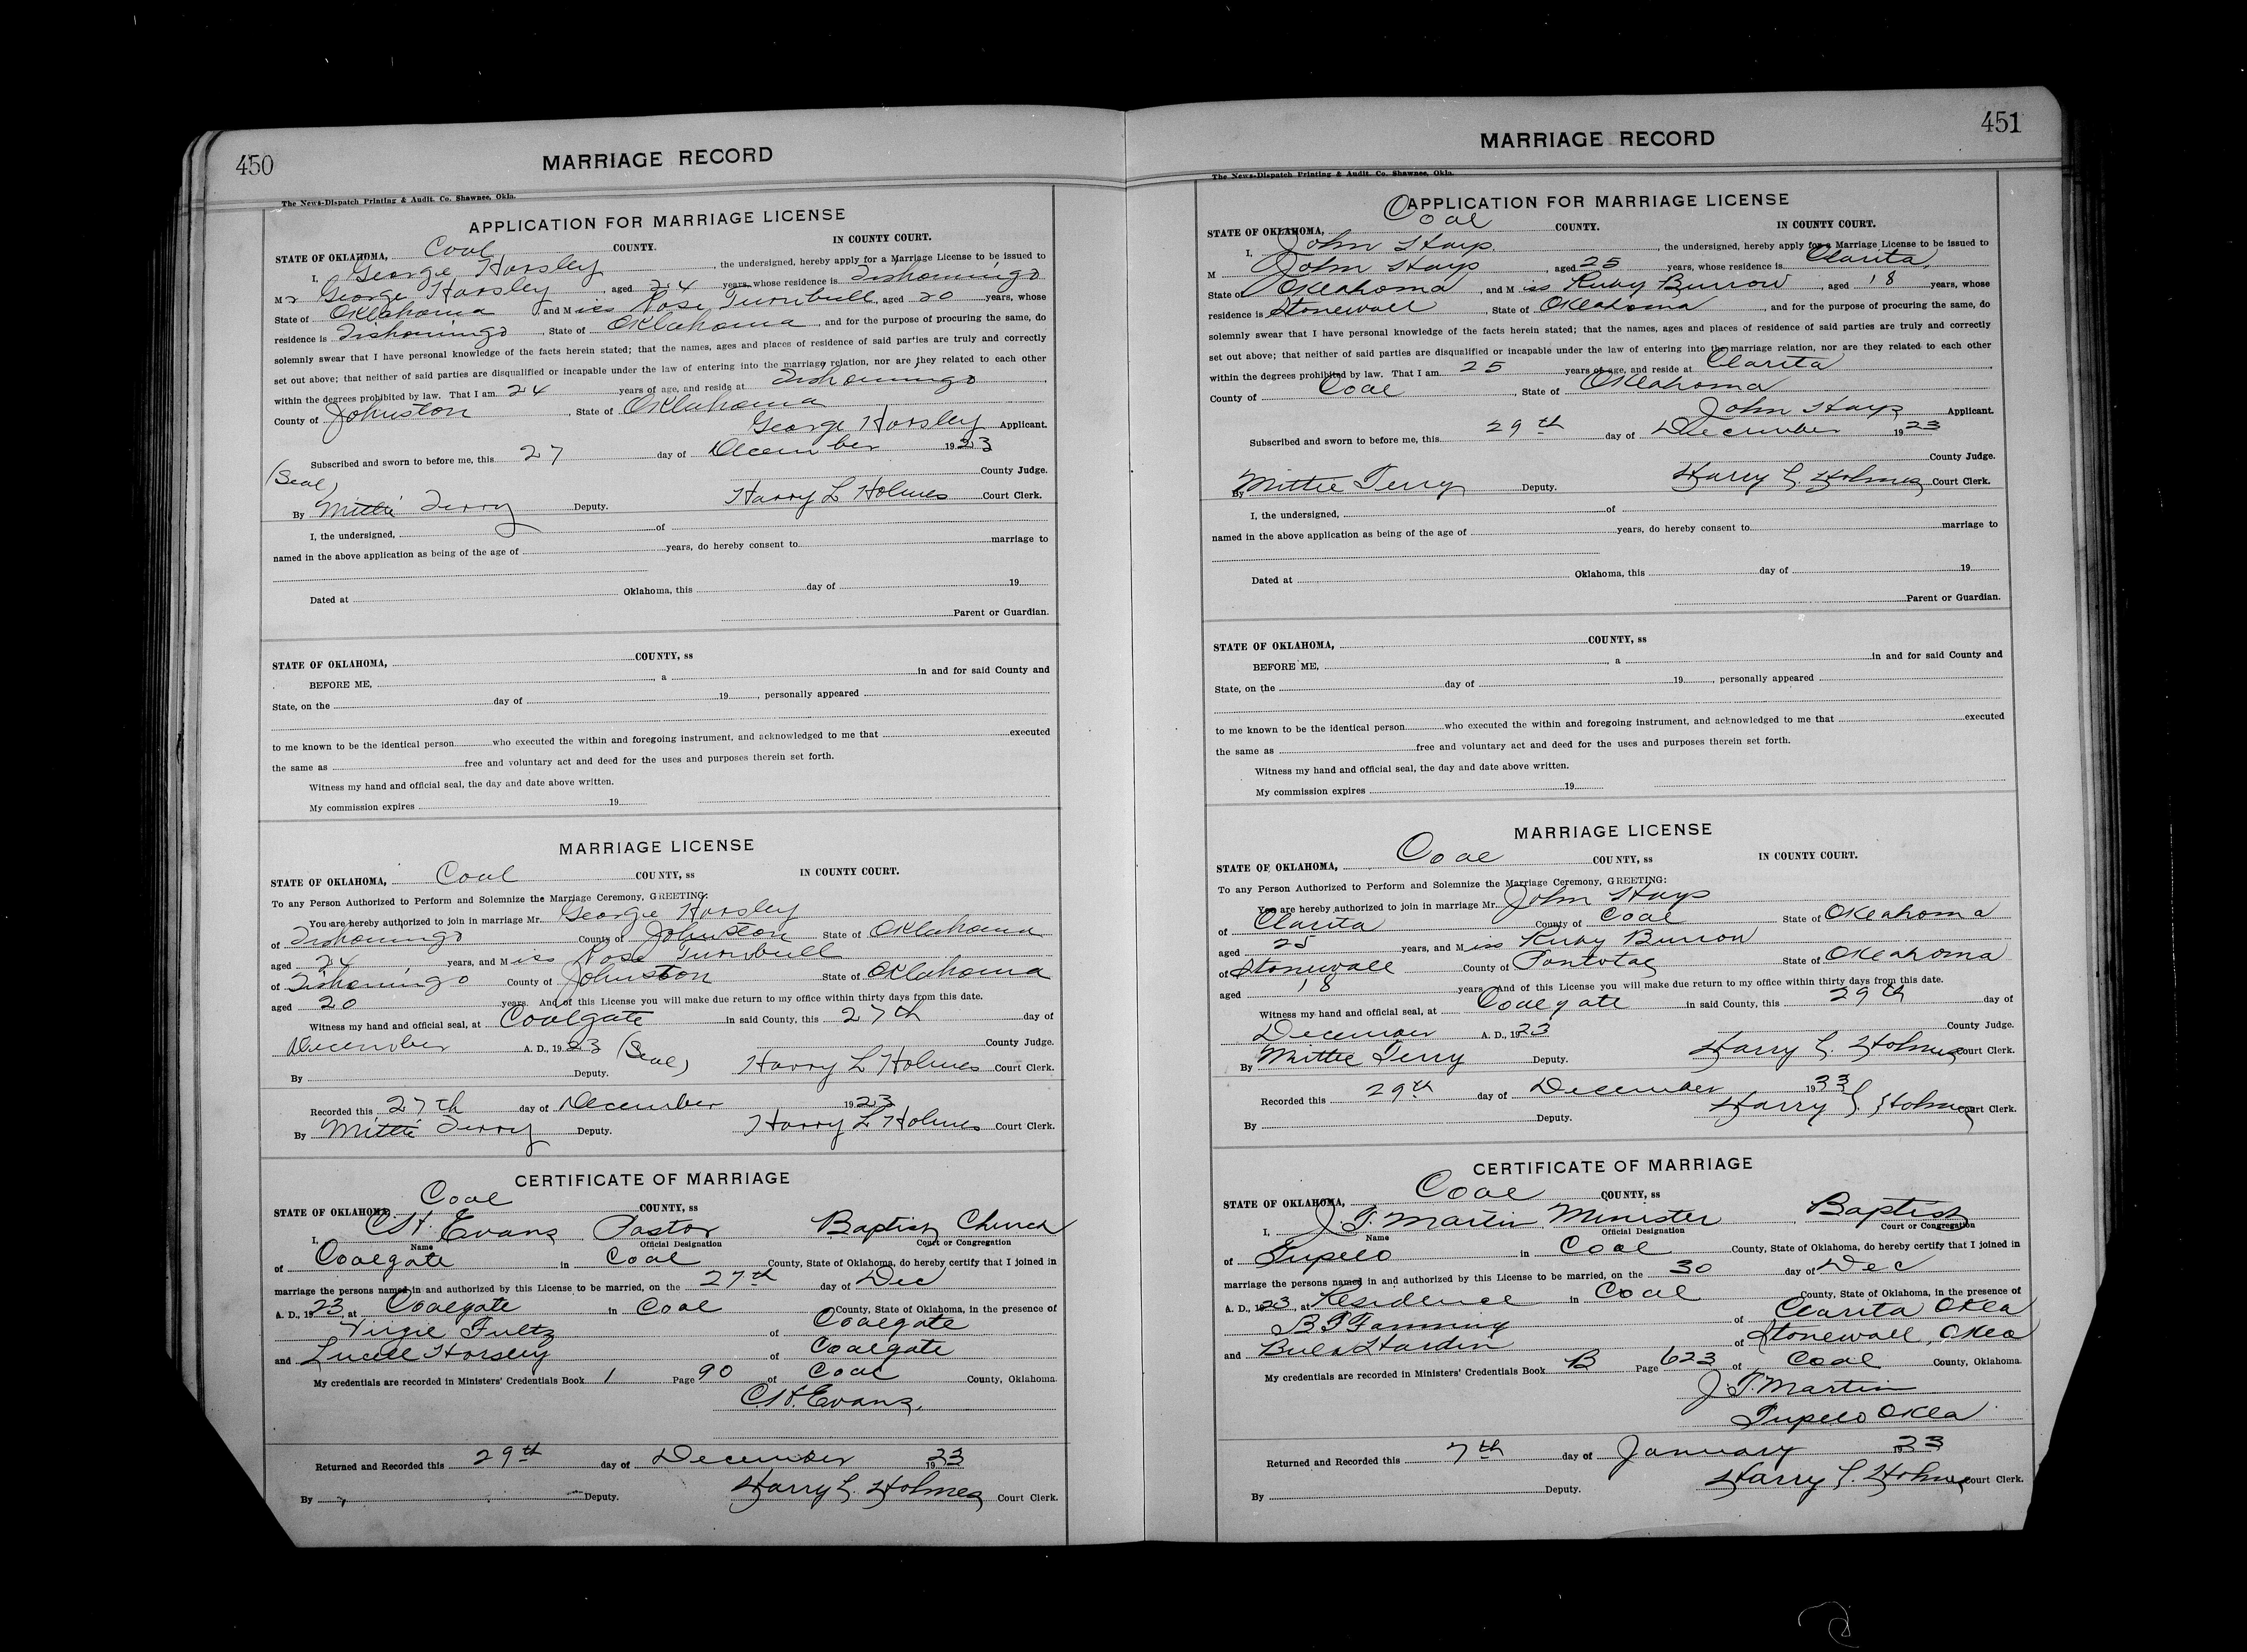 450
MARRIAGE RECORD
The News-Dispatch Printing & Audit. Co. Shawnee, Okla.
APPLICATION FOR MARRIAGE LICENSE
STATE OF OKLAHOMA, Coal COUNTY. IN COUNTY COURT.
I, George Horsley, the undersigned, hereby apply for a Marriage License to be issued to
Mr George Horsley, aged 24 years, whose residence is Tishomingo
State of Oklahoma and Miss Rose Turnbull, aged 20 years, whose
residence is Tishomingo, State of Oklahoma, and for the purpose of procuring the same, do
solemnly swear that I have personal knowledge of the facts herein stated; that the names, ages and places of residence of said parties are truly and correctly
set out above; that neither of said parties are disqualified or incapable under the law of entering into the marriage relation, nor are they related to each other
within the degrees prohibited by law. That I am 24 years of age, and reside at Tishomingo,
County of Johnston, State of Oklahoma
George Horsley Applicant.
Subscribed and sworn to before me, this 27 day of December 1923
(Seal) County Judge.
By Mittie Terry Deputy. Harry L Holmes Court Clerk.
I, the undersigned, of
named in the above application as being of the age of years, do hereby consent to marriage to
Dated at Oklahoma, this day of 19
Parent or Guardian.
STATE OF OKLAHOMA, COUNTY, ss
BEFORE ME, , a in and for said County and
State, on the day of 19 , personally appeared
to me known to be the identical person who executed the within and foregoing instrument, and acknowledged to me that executed
the same as free and voluntary act and deed for the uses and purposes therein set forth.
Witness my hand and official seal, the day and date above written.
My commission expires 19
MARRIAGE LICENSE
STATE OF OKLAHOMA, Coal COUNTY, ss IN COUNTY COURT.
To any Person Authorized to Perform and Solemnize the Marriage Ceremony, GREETING:
You are hereby authorized to join in marriage Mr. George Horsley
of Tishomingo County of Johnston State of Oklahoma
aged 24 years, and Miss Rose Turnbull
of Tishomingo County of Johnston State of Oklahoma
aged 20 years. And of this License you will make due return to my office within thirty days from this date.
Witness my hand and official seal, at Coalgate in said County, this 27th day of
December A. D., 1923 (Seal) County Judge.
By Deputy. Harry L Holmes Court Clerk.
Recorded this 27th day of December 1923
By Mittie Terry Deputy. Harry L Holmes Court Clerk.
CERTIFICATE OF MARRIAGE
STATE OF OKLAHOMA, Coal COUNTY, ss
I, C.H. Evans Pastor Baptist Church
Name Official Designation Court or Congregation
of Coalgate in Coal County, State of Oklahoma, do hereby certify that I joined in
marriage the persons named in and authorized by this License to be married, on the 27th day of Dec
A. D., 1923, at Coalgate in Coal County, State of Oklahoma, in the presence of
Virgie Fultz of Coalgate
and Lucille Horsley of Coalgate
My credentials are recorded in Ministers' Credentials Book 1 Page 90 of Coal County, Oklahoma.
C.H. Evans,
Returned and Recorded this 29th day of December 1923
By Deputy. Harry L. Holmes Court Clerk.
451
MARRIAGE RECORD
The News-Dispatch Printing & Audit. Co. Shawnee, Okla.
APPLICATION FOR MARRIAGE LICENSE
STATE OF OKLAHOMA, Coal COUNTY. IN COUNTY COURT.
I, John Hays, the undersigned, hereby apply for a Marriage License to be issued to
M John Hays, aged 25 years, whose residence is Clarita,
State of Oklahoma, and Miss Ruby Burrow, aged 18 years, whose
residence is Stonewall, State of Oklahoma, and for the purpose of procuring the same, do
solemnly swear that I have personal knowledge of the facts herein stated; that the names, ages and places of residence of said parties are truly and correctly
set out above; that neither of said parties are disqualified or incapable under the law of entering into the marriage relation, nor are they related to each other
within the degrees prohibited by law. That I am 25 years of age, and reside at Clarita,
County of Coal, State of Oklahoma
John Hays Applicant.
Subscribed and sworn to before me, this 29th day of December 1923
County Judge.
By Mittie Terry Deputy. Harry L. Holmes Court Clerk.
I, the undersigned, of
named in the above application as being of the age of years, do hereby consent to marriage to
Dated at Oklahoma, this day of 19
Parent or Guardian.
STATE OF OKLAHOMA, COUNTY, ss
BEFORE ME, , a in and for said County and
State, on the day of 19 , personally appeared
to me known to be the identical person who executed the within and foregoing instrument, and acknowledged to me that executed
the same as free and voluntary act and deed for the uses and purposes therein set forth.
Witness my hand and official seal, the day and date above written.
My commission expires 19
MARRIAGE LICENSE
STATE OF OKLAHOMA, Coal COUNTY, ss IN COUNTY COURT.
To any Person Authorized to Perform and Solemnize the Marriage Ceremony, GREETING:
You are hereby authorized to join in marriage Mr. John Hays
of Clarita County of Coal State of Oklahoma
aged 25 years, and Miss Ruby Burrow
of Stonewall County of Pontotoc State of Oklahoma
aged 18 years. And of this License you will make due return to my office within thirty days from this date.
Witness my hand and official seal, at Coalgate in said County, this 29th day of
December A. D., 1923 County Judge.
By Mittie Terry Deputy. Harry L Holmes Court Clerk.
Recorded this 29th day of December 1933
By Deputy. Harry L. Holmes Court Clerk.
CERTIFICATE OF MARRIAGE
STATE OF OKLAHOMA, Coal COUNTY, ss
I, J. T. Martin Minister Baptist
Name Official Designation Court or Congregation
of Tupelo in Coal County, State of Oklahoma, do hereby certify that I joined in
marriage the persons named in and authorized by this License to be married, on the 30 day of Dec
A. D., 1923, at Residence in Coal County, State of Oklahoma, in the presence of
B T Fanning of Clarita Okla
and Beula Hardin of Stonewall, Okla
My credentials are recorded in Ministers' Credentials Book B Page 623 of Coal County, Oklahoma.
J. T. Martin
Tupelo Okla
Returned and Recorded this 7th day of January 1923
By Deputy. Harry L. Holmes Court Clerk.